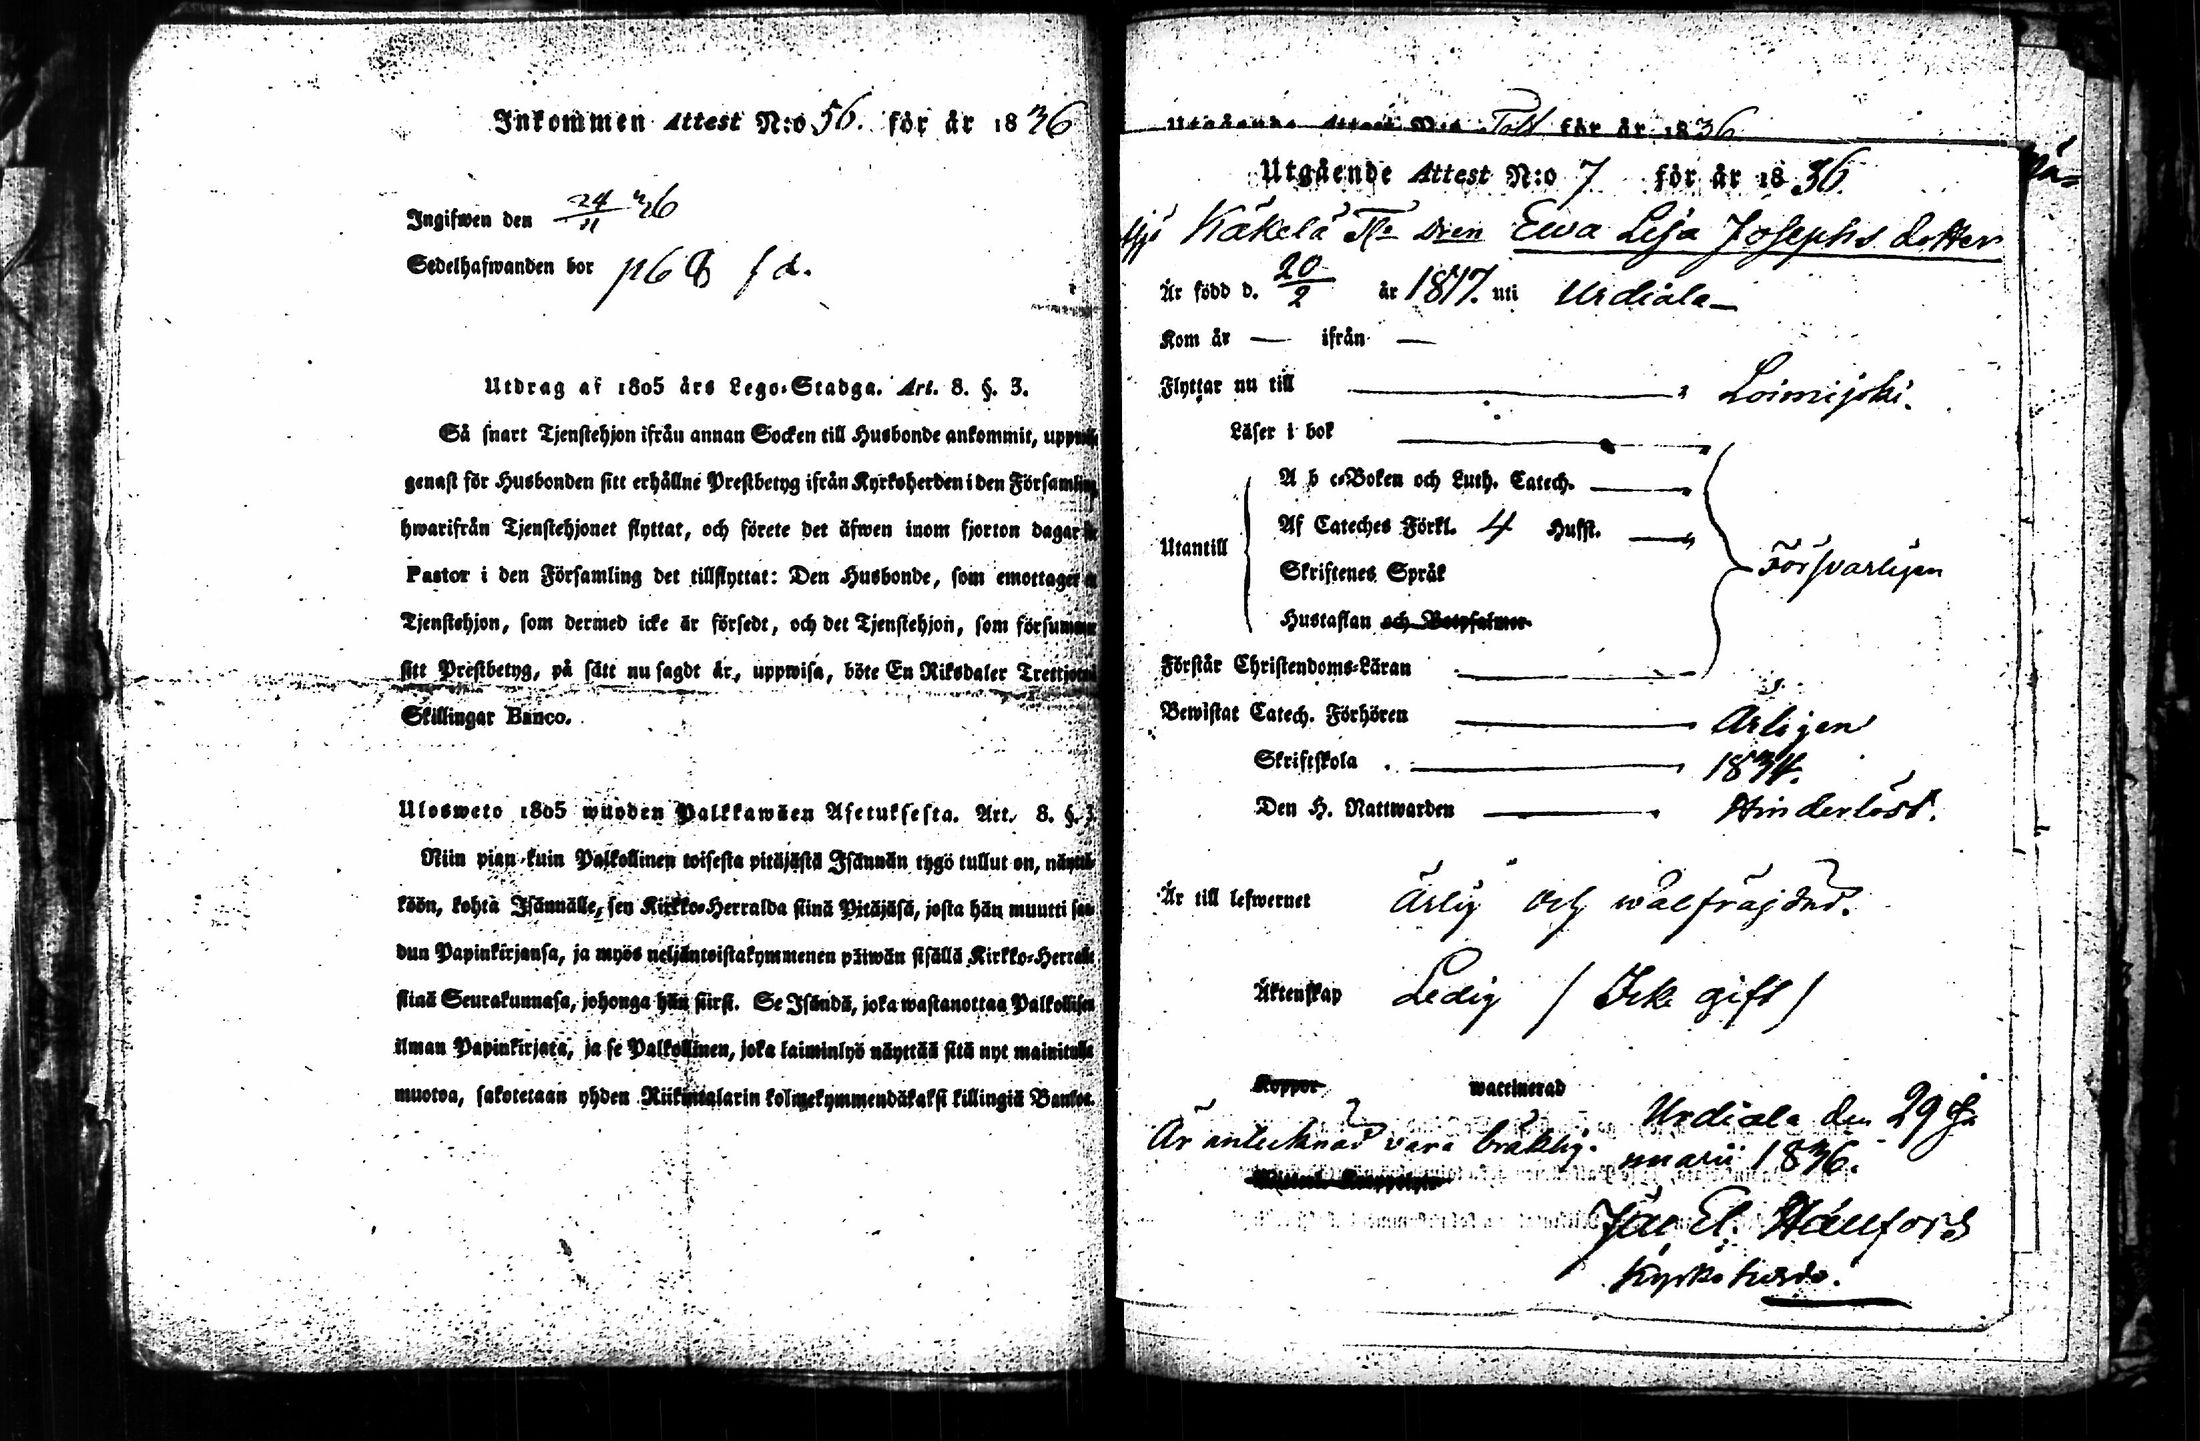 Inkommen Attest N:o 56. för år 1836
Ingifwen den 24/11 36
Sedelhafwanden bor p 68 f d.
Utdrag af 1805 års Lego-Stadga. Art. 8. §. 3.
Så snart Tjenstehjon ifrån annan Socken till Husbonde ankommit,
genast för Husbonden sitt erhållne Prestbetyg ifrån Kyrkoherden i den Församling
hwarifrån Tjenstehjonet flyttat, och förete det äfwen inom fjorton dagar
Pastor i den Församling det tillflyttat: Den Husbonde, som emottager
Tjenstehjon, som dermed icke är försedt, och det Tjenstehjon, som försummar
sitt Prestbetyg, på sätt nu sagdt är, uppwisa, böte En Riksdaler
Skillingar Banco.
Ulosweto 1805 wuoden Palkkawäen Asetuksesta. Art. 8. §. 3.
Niin pian kuin Palkollinen toisesta pitäjästä Isännän tygö tullut on, näyttä-
köön, kohta Isännälle, sen Kirkko-Herralda siinä Pitäjäsä, josta hän muutti saa-
dun Papinkirjansa, ja myös neljäntoistakymmenen päiwän sisällä Kirkko-Herralle
siinä Seurakunnasa, johonga hän siirsi. Se Isändä, joka wastanottaa Palkollisen
ilman Papinkirjata, ja se Palkollinen, joka laiminlyö näyttää sitä nyt mainitulla
muotoa, sakotetaan yhden Riikintalarin kolmekymmendäkaksi killingiä Bankoa.
Utgående Attest N:o Tolf för år 1836
Utgående Attest N:o 7 för år 1836.
Käkelä Ewa Lisa Josephs dotter
Är född d. 20/2 år 1817. uti Urdiala
Kom år — ifrån —
Flyttar nu till Loimijoki.
Läser i bok
A b c-Boken och Luth. Catech.
Af Cateches Förkl. 4 Husst.
Utantill
Försvarligen
Skriftenes Språk
Hustaflan och Botpsalmer
Förstår Christendoms-Läran
Bewistat Catech. Förhören Årligen
Skriftskola 1834.
Den H. Nattwarden Hinderlöst.
Är till lefwernet ärlig och wälfräjdad.
Äktenskap Ledig / Icke gift /
Koppor waccinerad
Urdiala den 29 Ja
Är antecknad vara bräklig. nuarii 1836.
Kyrkoherde.